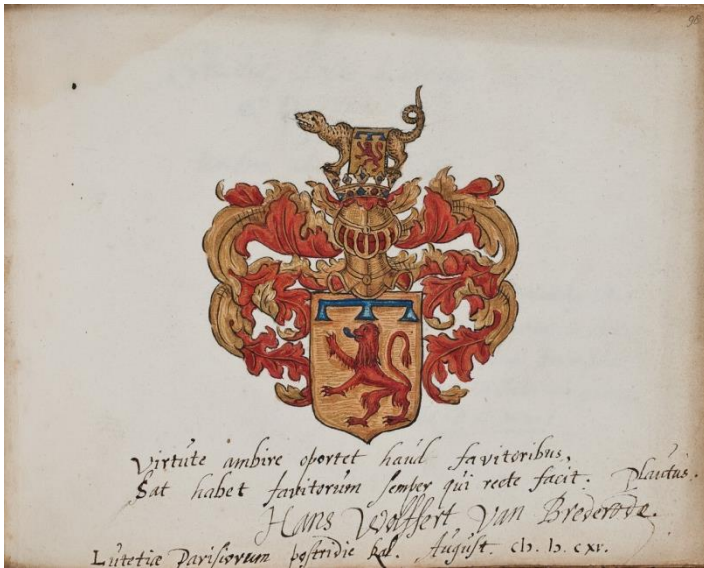 96
Virtute ambire oportet haud favitoribus,
Sat habet favitorum semper qui recte facit. Plautus.
Hans Wolffert Van Brederode.
Lutetiæ Parisiorum postridie kal. August. cIɔ. Iɔ. cxv.